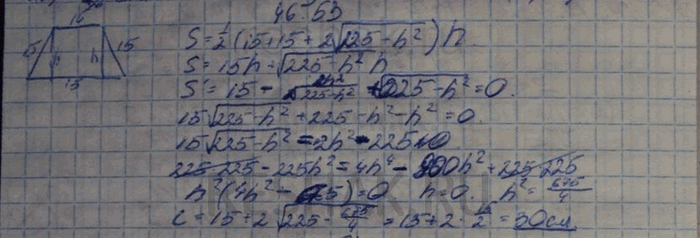 46.53
15
15 h h 15
15
S = 1/2 (15+15+2√(225-h²)) h
S = 15h + √(225-h²) h
S' = 15 - h²/√(225-h²) + √(225-h²) = 0.
15√(225-h²) + 225-h²-h² = 0.
15√(225-h²) = 2h² - 225
225·225 - 225h² = 4h⁴ - 900h² + 225·225
h²(4h² - 675) = 0 h = 0. h² = 675/4
C = 15+2√(225-675/4) = 15+2·15/2 = 30см.